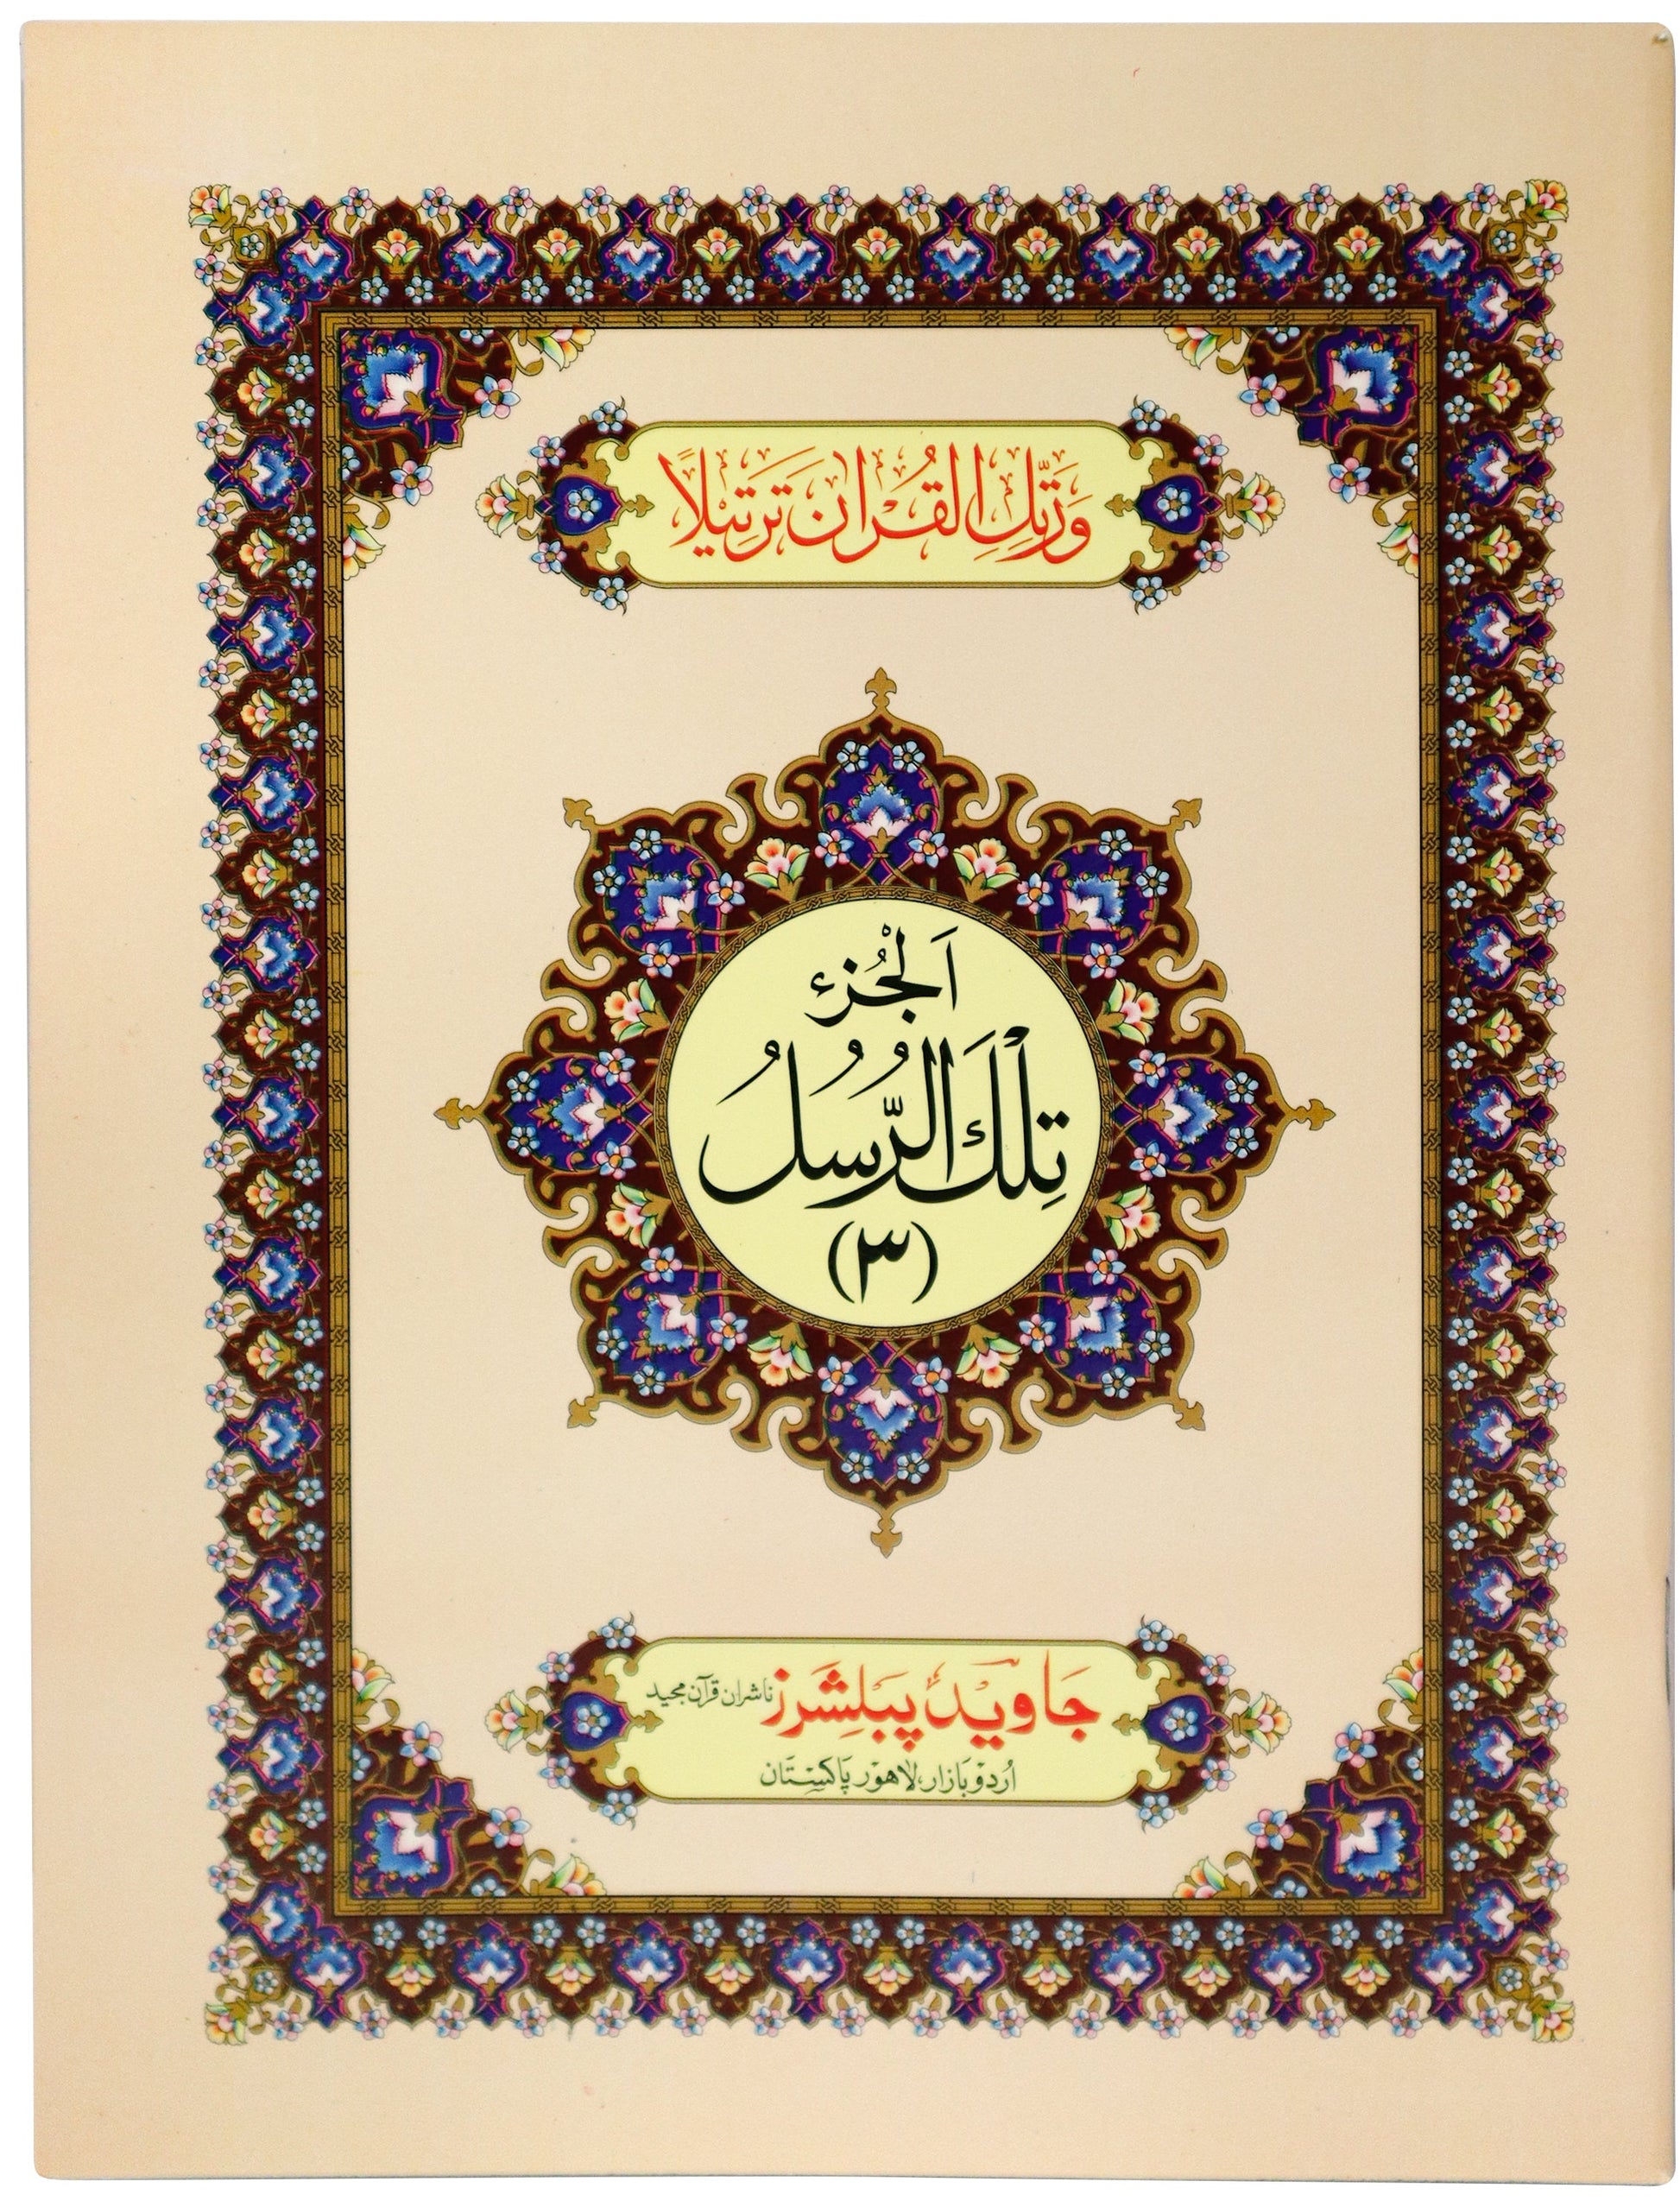 وَرَتِّلِ الْقُرْاٰنَ تَرْتِيْلًا
اَلْجُزءُ
تِلْكَ الرُّسُلُ
(٣)
جَاوِيْد پَبلِشَرز ناشران قرآن مجيد
اُردو بَازار، لاهور پَاکِستَان